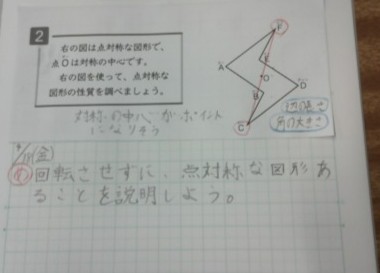 2
右の図は点対称な図形で、
点Oは対称の中心です。
右の図を使って、点対称な
図形の性質を調べましょう。
対称の中心がポイント
になりそう
F
A
E
O
B
D
C
辺の長さ
角の大きさ
(金)
め 回転させずに、点対称な図形あ
ることを説明しよう。